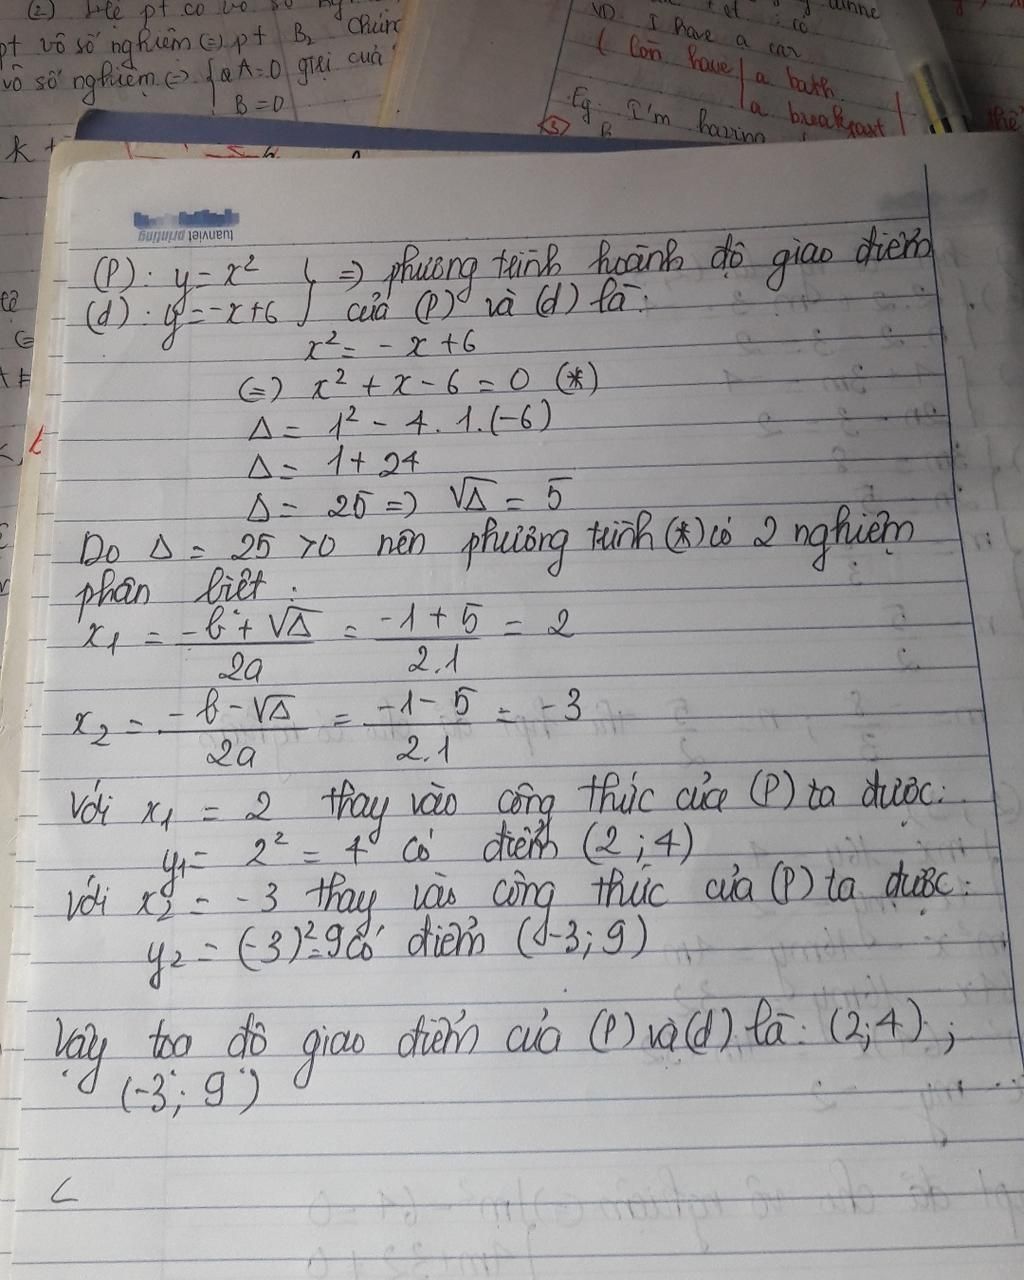 (2) Hệ pt có vô số
pt vô số nghiệm (=) pt B2 Chứn
vô số nghiệm. (=) { aA=0 giải của
B=0
k +
I have a car
( Còn have a bath
a breakfast
Eg. I'm having
tuanviet printing
(P): y = x² } => phương trình hoành độ giao điểm
(d): y = -x+6 } của (P) và (d) là:
x² = - x + 6
(=) x² + x - 6 = 0 (*)
Δ = 1² - 4. 1. (-6)
Δ = 1 + 24
Δ = 25 => √Δ = 5
Do Δ = 25 >0 nên phương trình (*) có 2 nghiệm
phân biệt:
x1 = -b + √Δ / 2a = -1 + 5 / 2.1 = 2
x2 = -b - √Δ / 2a = -1 - 5 / 2.1 = -3
Với x1 = 2 thay vào công thức của (P) ta được:
y1 = 2² = 4 có điểm (2 ; 4)
với x2 = -3 thay vào công thức của (P) ta được:
y2 = (-3)² = 9 có điểm (-3; 9)
Vậy toạ độ giao điểm của (P) và (d) là: (2; 4) ;
(-3; 9)